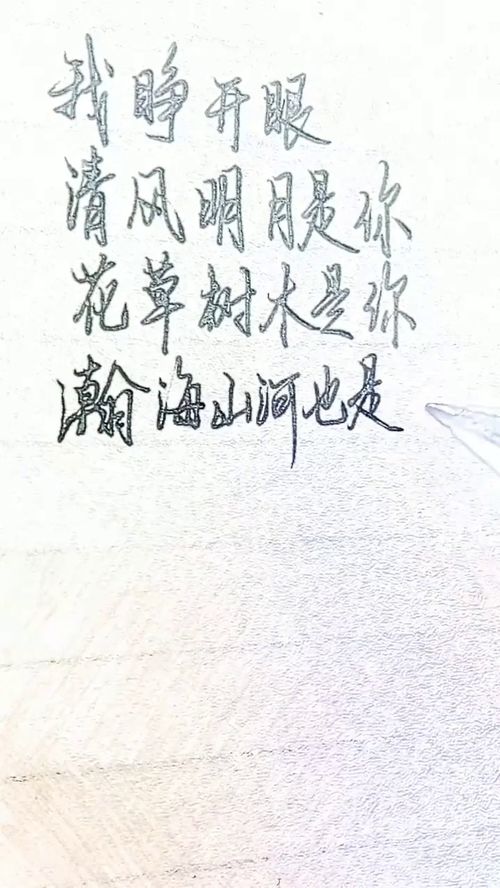 我睁开眼
清风明月是你
花草树木是你
瀚海山河也是